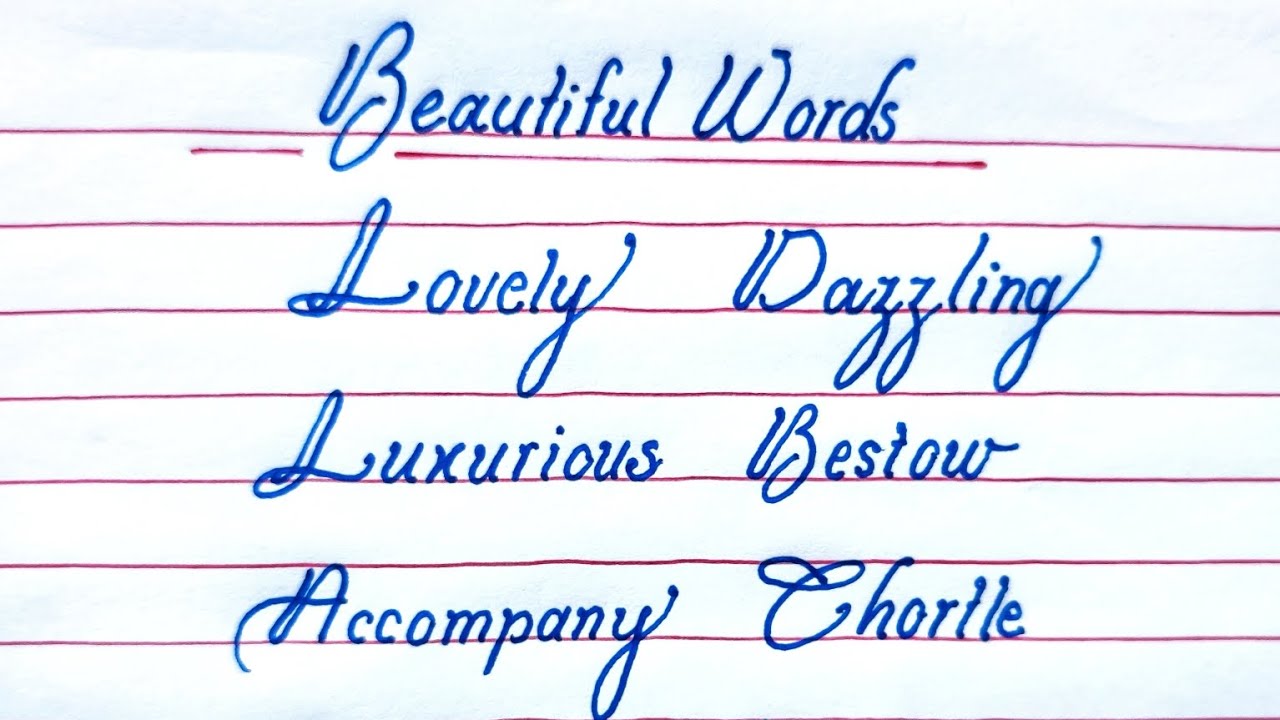 Beautiful Words
Lovely Dazzling
Luxurious Bestow
Accompany Chortle